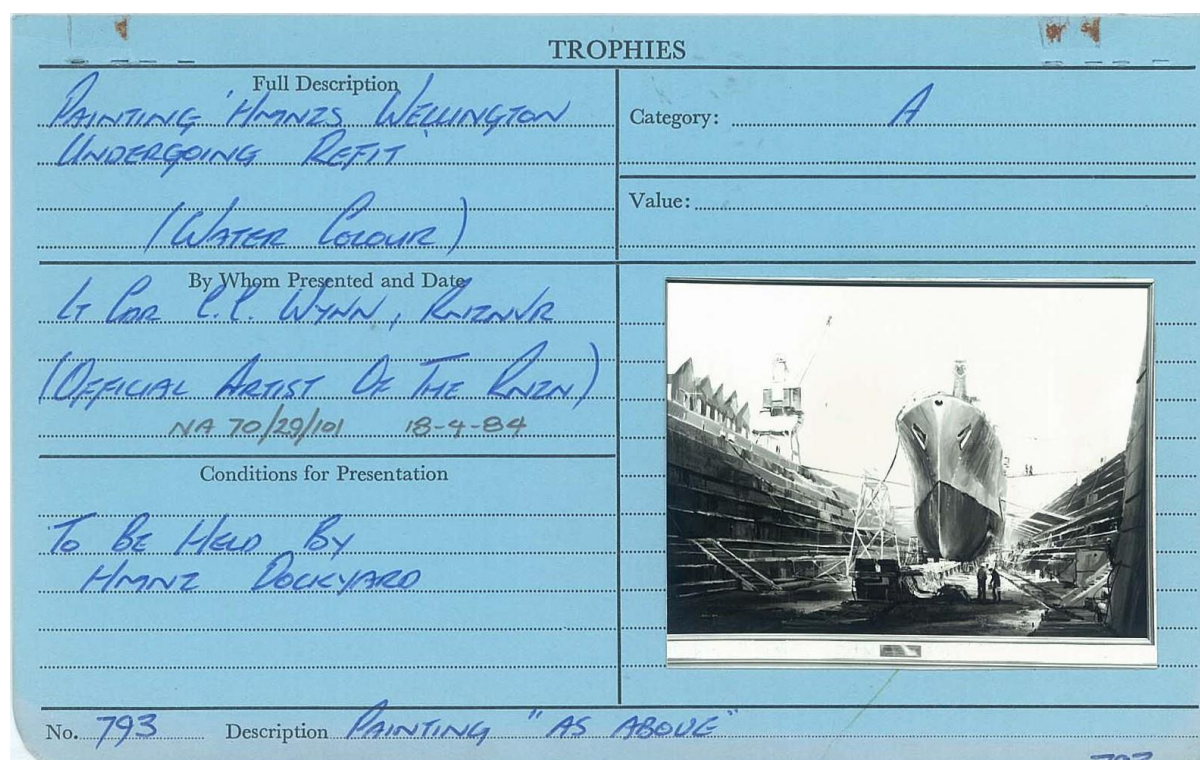 TROPHIES
Full Description
PAINTING 'HMNZS WELLINGTON
UNDERGOING REFIT'
(WATER COLOUR)
Category: A
Value:
By Whom Presented and Date
LT CDR C.C. WYNN, RNZNVR
(OFFICIAL ARTIST OF THE RNZN)
NA 70/29/101 18-4-84
Conditions for Presentation
TO BE HELD BY
HMNZ DOCKYARD
No. 793 Description PAINTING "AS ABOVE"
793